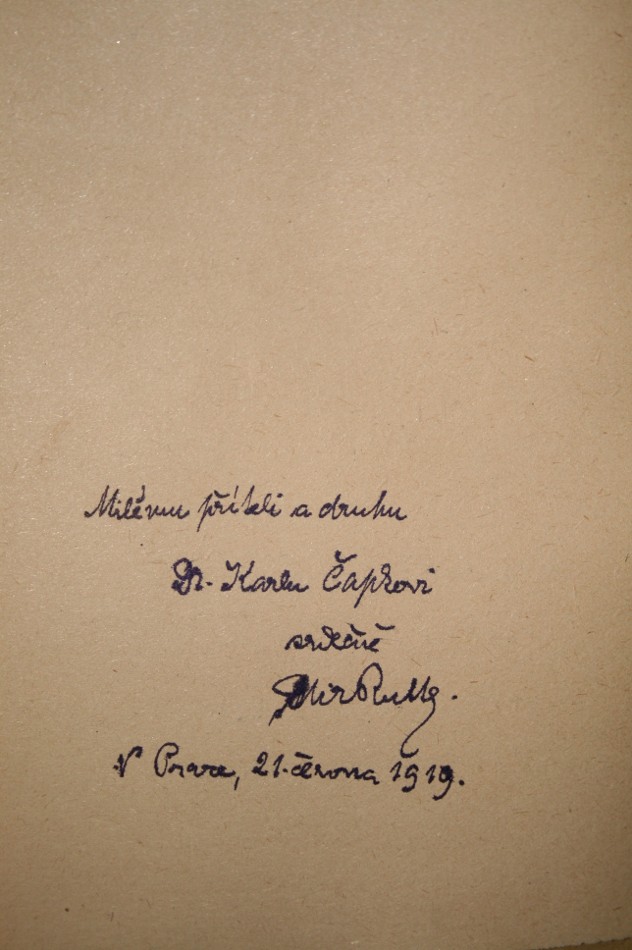 Milému příteli a druhu
Dr. Karlu Čapkovi
srdečně
Mir Rutte.
V Praze, 21. června 1919.